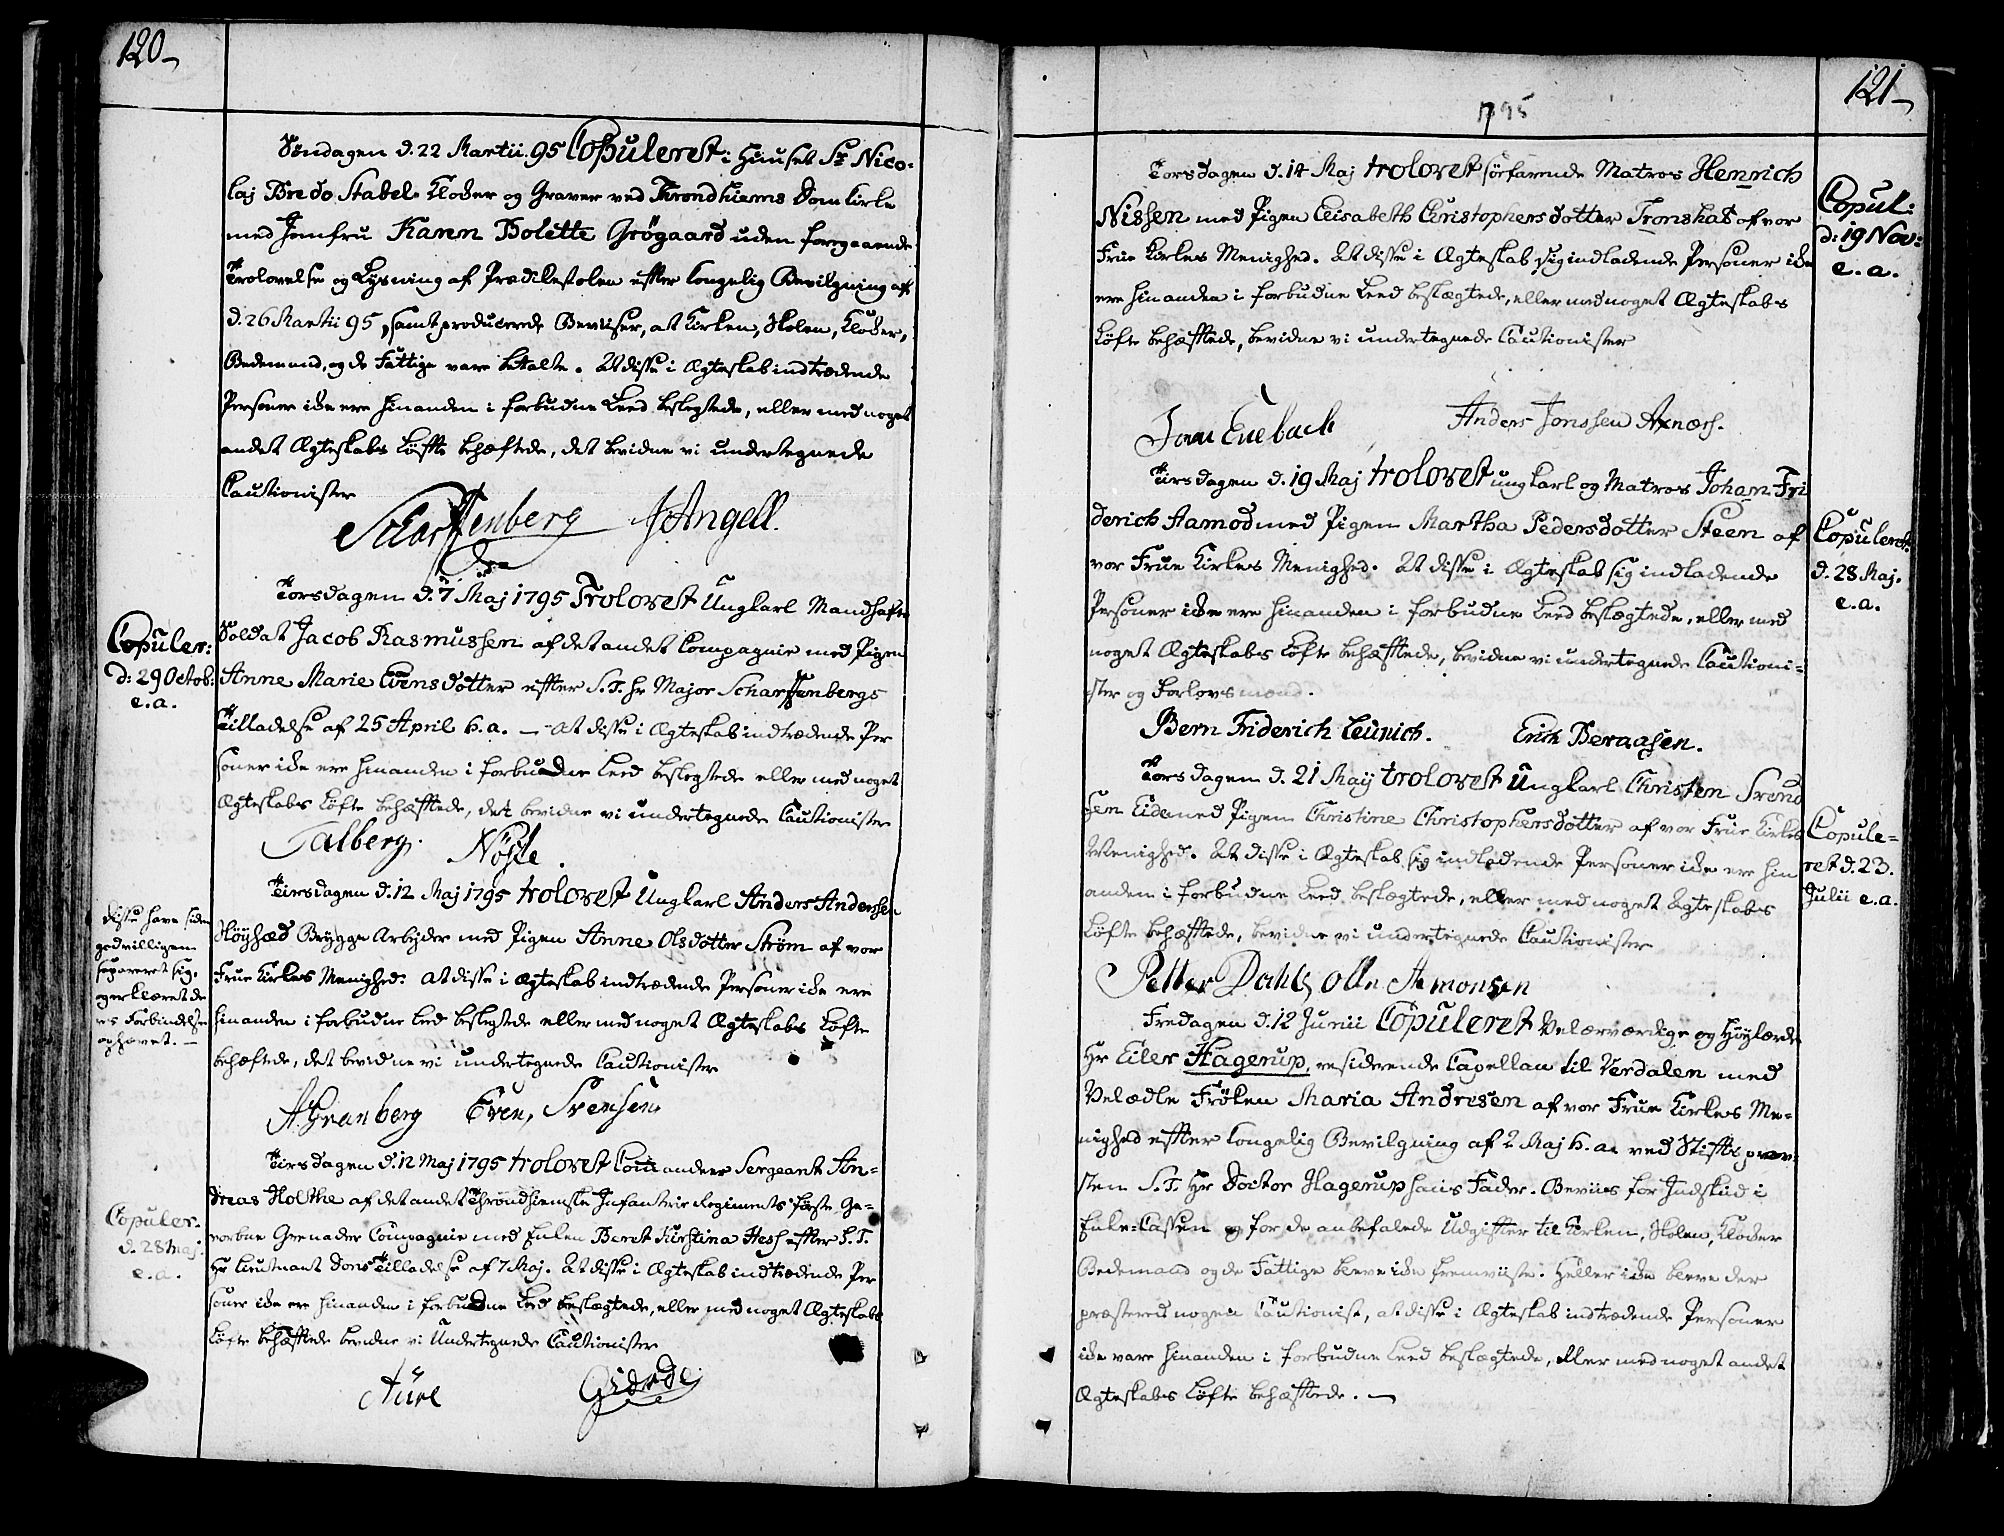 120_
Søndagen d. 22 Martii. 95 Copuleret i Huuset Sr Nico-
laj Bredo Stabel Kloker og Graver ved Throndhiems Domkirke
med Jomfru Karen Bolette Grøgaard uden foregaaende
Trolovelse og Lysning af Prædikestolen efter kongelig Bevilgning af
d. 26 Martii 95, samt producerede Beviiser, at Kirken, Skolen, Kloker,
Bedemand, og de Fattige vare betalte. At disse i Ægteskab indtrædende
Personer ikke ere hinanden i forbudne Leed beslegtede, eller med noget
andet Ægteskabs Løfte behæftede, det bevidne vi undertegnede
Cautionister
Scharffenberg JAngell.
Torsdagen d. 7 Maj 1795 Trolovet Ungkarl Mandhafte
Copuler:
d: 29 Octob:
e. a.
Soldat Jacob Rasmussen af det andet Compagnie med Pigen
Anne Marie Evensdotter efter S. T. hr Major Scharffenbergs
Tilladelse af 25 April h. a. — At disse i Ægteskab indtrædende Per
soner ikke ere hinanden i forbudne Leed beslegtede eller med noget
Ægteskabs Løfte behæftede, det bevidne vi undertegnede Cautionister
Talberg. Nøste.
Tirsdagen d. 12 Maj 1795 trolovet Ungkarl Anders Andersen
disse have siden
godvilligen
separeret sig,
og erklæret de
res Forbindelse
ophævet. —
Høyhæd Brygge Arbejder med Pigen Anne Olsdotter Strøm af vor
Frue Kirkes Menighed: At disse i Ægteskab indtrædende Personer ikke ere
hinanden i forbudne Led beslegtede eller med noget Ægteskabs Løfte
behæftede, det bevidne vi undertegnede Cautionister
A. Granberg Even, Svensen
Tirsdagen d. 12 Maj 1795 trolovet Comanderr Sergeant An-
Copuler:
d. 28 Maj.
e. a.
dreas Holthe af det andet Throndhiemske Infanterie Regiments første Ge-
vorbne Grenader Compagnie med Enken Beret Kirstina Hess efter S. T.
Hr Lieutnant Dons Tilladelse af 7 Maj. At disse i Ægteskab indtrædende Per
soner ikke ere hinanden i forbudne Leed beslægtede, eller med noget Ægteskabs
Løfte behæftede bevidne vi Undertegnede Cautionister
Aüre
121_
1795
Torsdagen d. 14 Maj trolovet søefarende Matros Henrich
Copul:
d: 19 Nov:
e. a.
Nissen med Pigen Elisabeth Christophersdotter Tronshat af vor
Frue Kirkes Menighed. At disse i Ægteskab sig indladende Personer ikke
ere hinanden i forbudne Leed beslægtede, eller med noget Ægteskabs
Løfte behæftede, bevidne vi undertegnede Cautionister
Anders Jonssen
Tirsdagen d. 19 Maj trolovet ungkarl og Matros Johan Fri
Copuleret
d. 28 Maj.
e. a.
derich Aamod med Pigen Martha Pedersdotter Steen af
vor Frue Kirkes Menighed. At disse i Ægteskab sig indladende
Personer ikke ere hinanden i forbudne Leed beslægtede, eller med
noget Ægteskabs Løfte behæftede, bevidne vi undertegnede Cautioni-
ster og Forlovsmænd.
Bern Friderich Leunich. Erich Beraasen.
Torsdagen d. 21 Maij trolovet Ungkarl Christen Svend
Copule-
ret d. 23.
Julii e. a.
sen Eide med Pigen Christine Christophersdotter af vor Frue Kirkes
Menighed. At disse i Ægteskab sig indladende Personer ikke ere hin
anden i forbudne Leed beslægtede, eller med noget Ægteskabs
Løfte behæftede, bevidne vi undertegnede Cautionister
Petter Dahl, Olle Aamonsen
Fredagen d. 12 Junii Copuleret Velærværdige og Høylærde
Hr Eiler Hagerup, residerende Capellan til Verdalen med
Velædle Frøken Maria Andresen af vor Frue Kirkes Me-
nighed efter kongelig Bevilgning af 2 Maj h. a. ved Stiftsprov-
sten S. T. Hr Doctor Hagerup hans Fader. Beviis for Indskud i
Enke-Cassen og for de anbefalede Udgifter til Kirken, Skolen, Kloker
Bedemand og de Fattige bleve ikke fremviiste. Heller ikke bleve der
præsteret nogen Cautionist, at disse i Ægteskab indtrædende Personer
ikke vare hinanden i forbudne Leed beslægtede, eller med noget andet
Ægteskabs Løfte behæftede. —